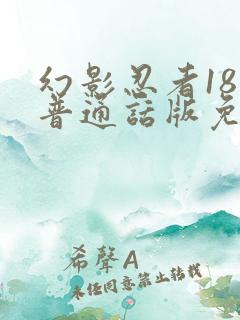 幻影忍者18
普通話版免
希聲A
未经同意禁止转载